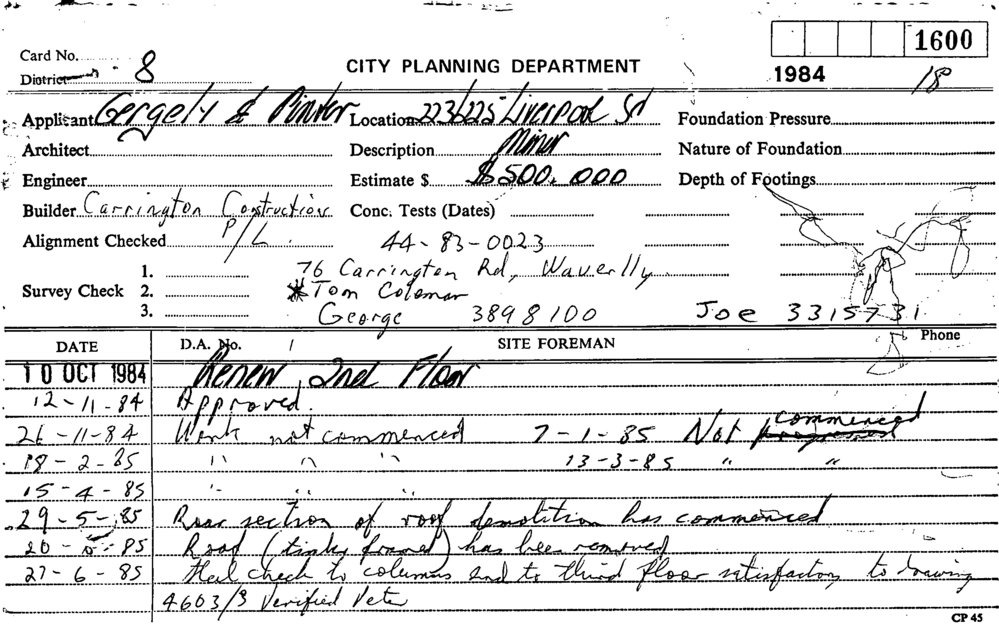 1600
Card No. 8
CITY PLANNING DEPARTMENT
1984 18
District
Applicant Gergely & Pinter Location 223/225 Liverpool St Foundation Pressure
Architect Description Minor Nature of Foundation
Engineer Estimate $ $500,000 Depth of Footings
Builder Carrington Constructions Conc. Tests (Dates)
P/L
Alignment Checked 44-83-0023
1. 76 Carrington Rd, Waverlly
Survey Check 2. *Tom Coleman
3. George 3898100 Joe 3315731
DATE D.A. No. SITE FOREMAN Phone
10 OCT 1984 Renew 2nd Floor
12-11-84 Approved.
26-11-84 Work not commenced 7-1-85 Not commenced
18-2-85 " " " 13-3-85 " "
15-4-85 " " "
29-5-85 Rear section of roof demolition has commenced
20- -85 Roof ( framed) has been removed
27-6-85 Steel check to columns and to third floor satisfactory to drawing
4603/3 Verified Peter
CP 45